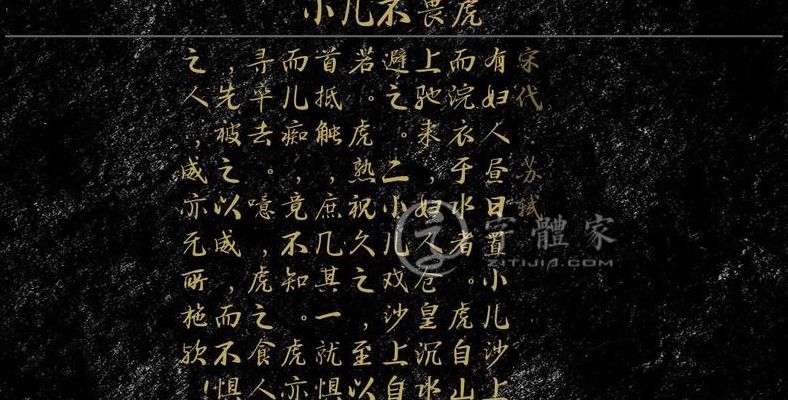 小儿不畏虎
宋代·苏轼
有妇人昼日置小儿沙上
而浣衣于水者。虎自山
上驰来,妇人仓皇沉水
避之。二小儿戏沙上自
若。虎熟视久之,至以
首抵触,庶几其一就惧
而儿痴,竟不知。虎亦
寻卒去。噫,虎之食人
,先被之以威,而不惧
之人,威亦无所施欤!
字體家
ZITIJIA.COM